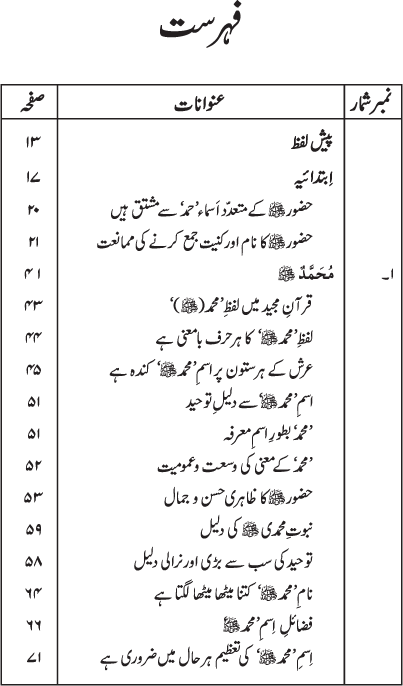 فہرست
نمبر شمار عنوانات صفحہ
پیش لفظ ۱۳
اِبتدائیہ ۱۷
حضور ﷺ کے متعدّد اَسماء ’حمد‘ سے مشتق ہیں ۲۰
حضور ﷺ کا نام اور کنیت جمع کرنے کی ممانعت ۲۱
۱۔ مُحَمَّدٌ ﷺ ۴۱
قرآنِ مجید میں لفظِ ’محمد(ﷺ)‘ ۴۳
لفظِ ’محمد ﷺ‘ کا ہر حرف بامعنی ہے ۴۴
عرش کے ہر ستون پر اسمِ ’محمد ﷺ‘ کندہ ہے ۴۵
اسمِ ’محمد ﷺ‘ سے دلیلِ توحید ۵۱
’محمد‘ بطورِ اسمِ معرفہ ۵۱
’محمد‘ کے معنی کی وسعت و عمومیت ۵۲
حضور ﷺ کا ظاہری حسن و جمال ۵۳
نبوتِ محمدی ﷺ کی دلیل ۵۹
توحید کی سب سے بڑی اور نرالی دلیل ۵۸
نامِ ’محمد ﷺ‘ کتنا میٹھا میٹھا لگتا ہے ۶۴
فضائلِ اِسمِ ’محمد ﷺ‘ ۶۶
اِسمِ ’محمد ﷺ‘ کی تعظیم ہر حال میں ضروری ہے ۷۱